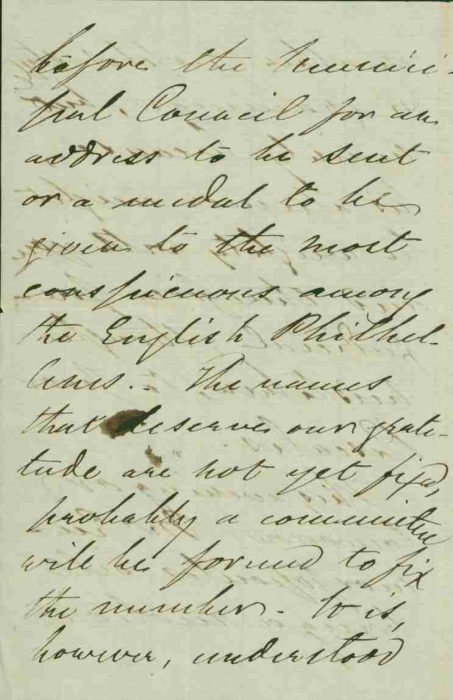 before the Munici-
pal Council for an
address to be sent
or a medal to be
given to the most
conspicuous among
the English Philhel-
lens. - The names
that deserve our grati-
tude are not yet fixed,
probably a committee
will be formed to fix
the number - It is,
however, understood